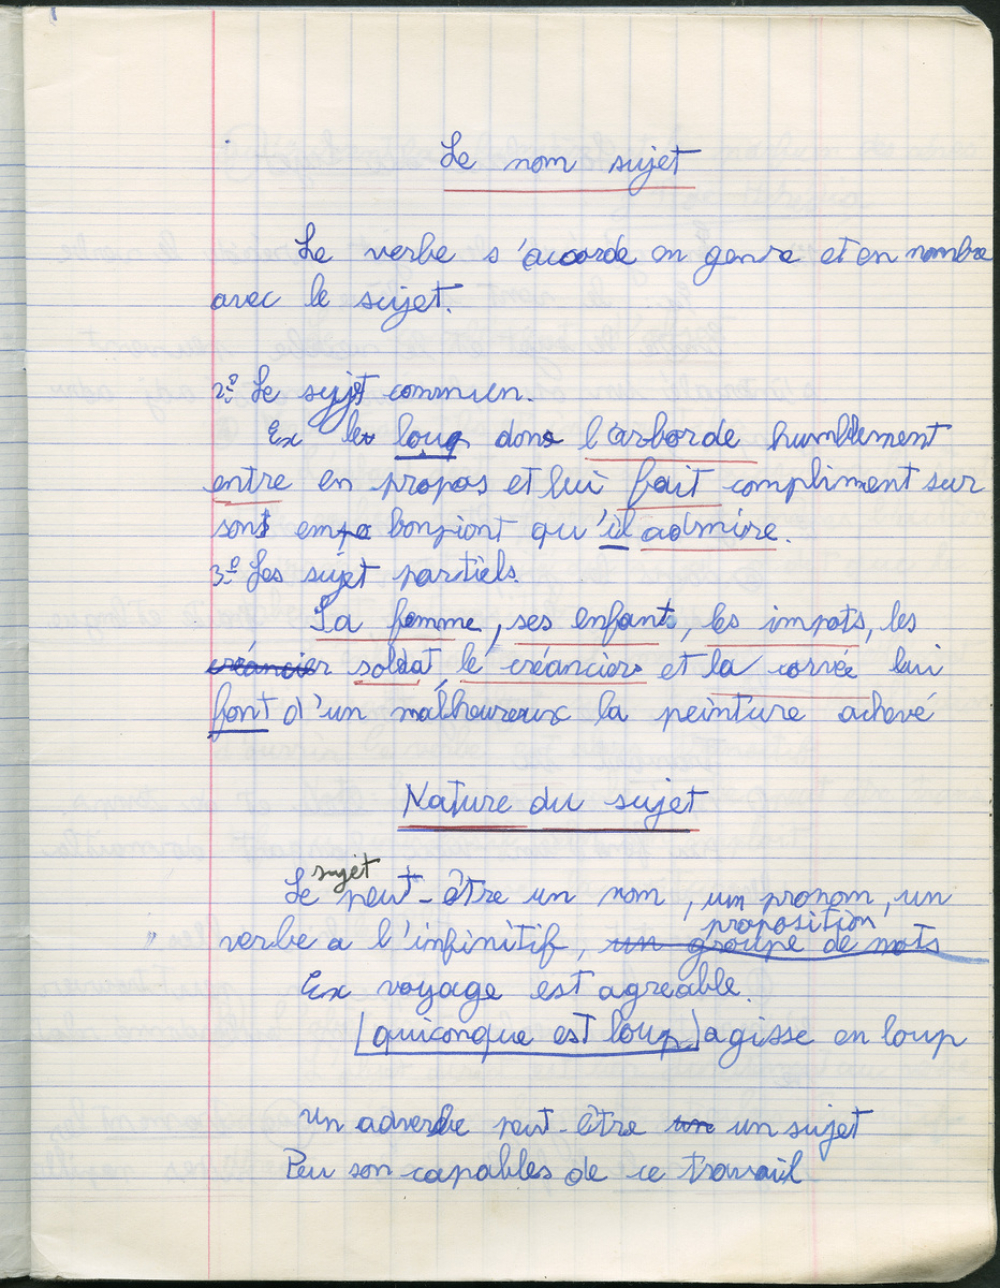 Le nom sujet
Le verbe s'acorde en genre et en nombre
avec le sujet.
2º Le sujet commun.
Ex le loup donc l'arborde humblement
entre en propos et lui fait compliment sur
son embonpiont qu'il admire.
3º Les sujet partiels.
Sa femme, ses enfants, les impots, les
créancier soldat, le créanciers et la corvée lui
font d'un malheureux la peinture achevé
Nature du sujet
Le sujet peut-être un nom, un pronom, un
verbe a l'infinitif, un groupe de mots proposition
Ex voyage est agreable.
(quiconque est loup) agisse en loup
Un adverbe peut-être un un sujet
Peu son capables de ce travail